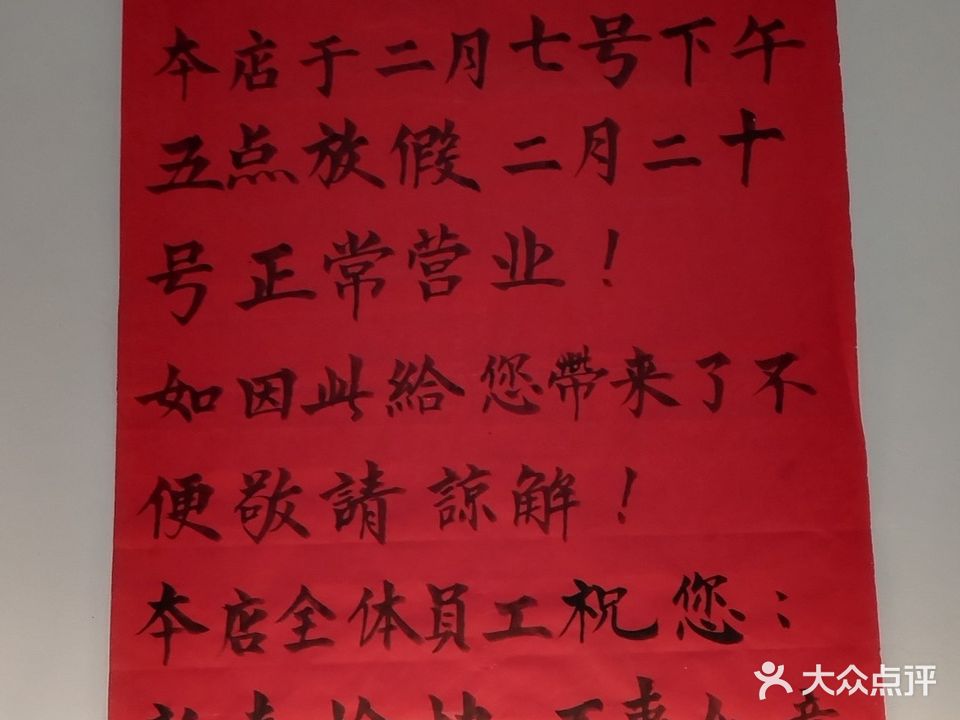 本店于二月七号下午
五点放假 二月二十
号正常营业！
如因此給您帶来了不
便敬請諒解！
本店全体員工祝您：
大众点评